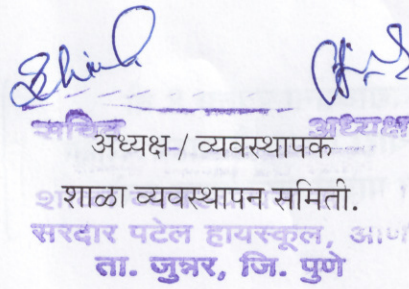 सचिव अध्यक्ष
अध्यक्ष / व्यवस्थापक
शाळा व्यवस्थापन समिती.
सरदार पटेल हायस्कूल,
ता. जुन्नर, जि. पुणे